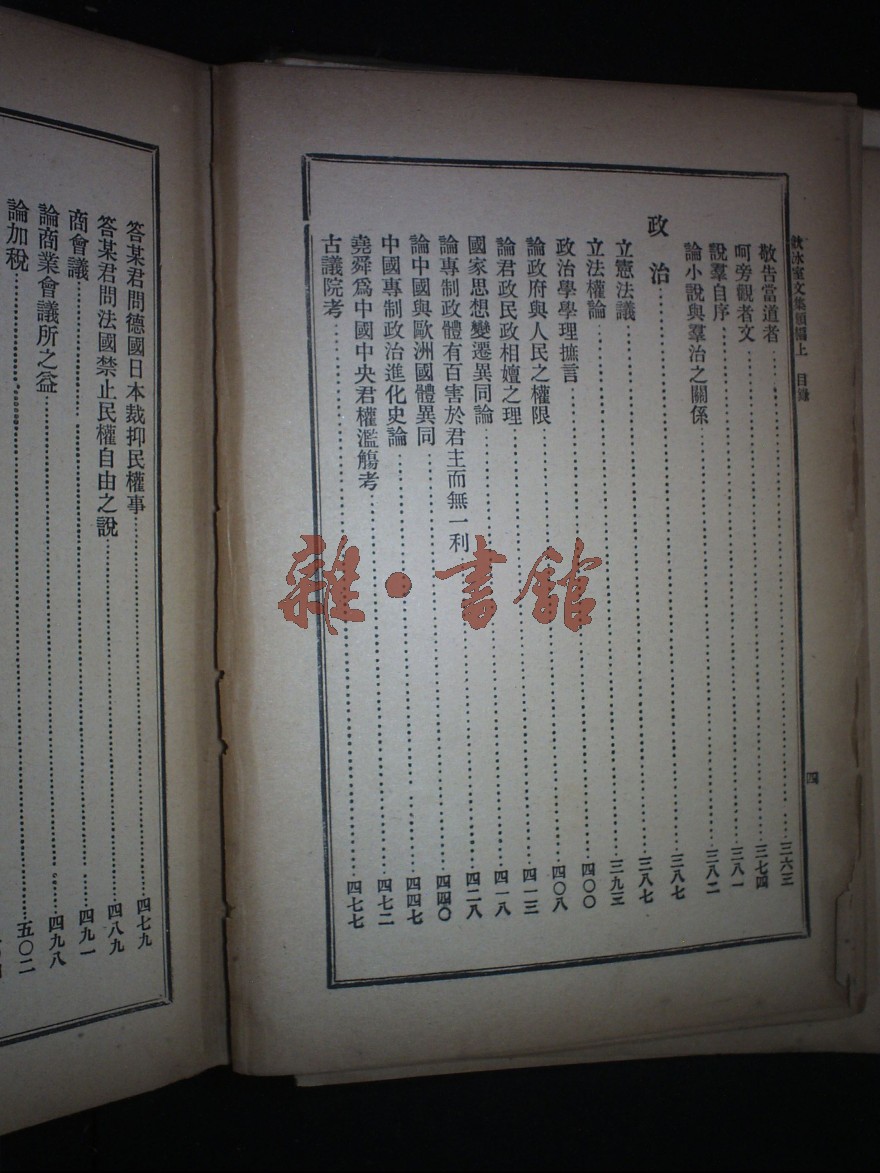 飲冰室文集類編上 目錄 四
敬告當道者……三六三
呵旁觀者文……三七四
說羣自序……三八一
論小說與羣治之關係……三八二
政治……三八七
立憲法議……三八七
立法權論……三九三
政治學學理摭言……四〇〇
論政府與人民之權限……四〇八
論君政民政相嬗之理……四一三
國家思想變遷異同論……四一八
論專制政體有百害於君主而無一利……四二八
論中國與歐洲國體異同……四四〇
中國專制政治進化史論……四四七
堯舜爲中國中央君權濫觴考……四七二
古議院考……四七七
答某君問德國日本裁抑民權事……四七九
答某君問法國禁止民權自由之說……四八九
商會議……四九一
論商業會議所之益……四九八
論加稅……五〇二
雜·書館